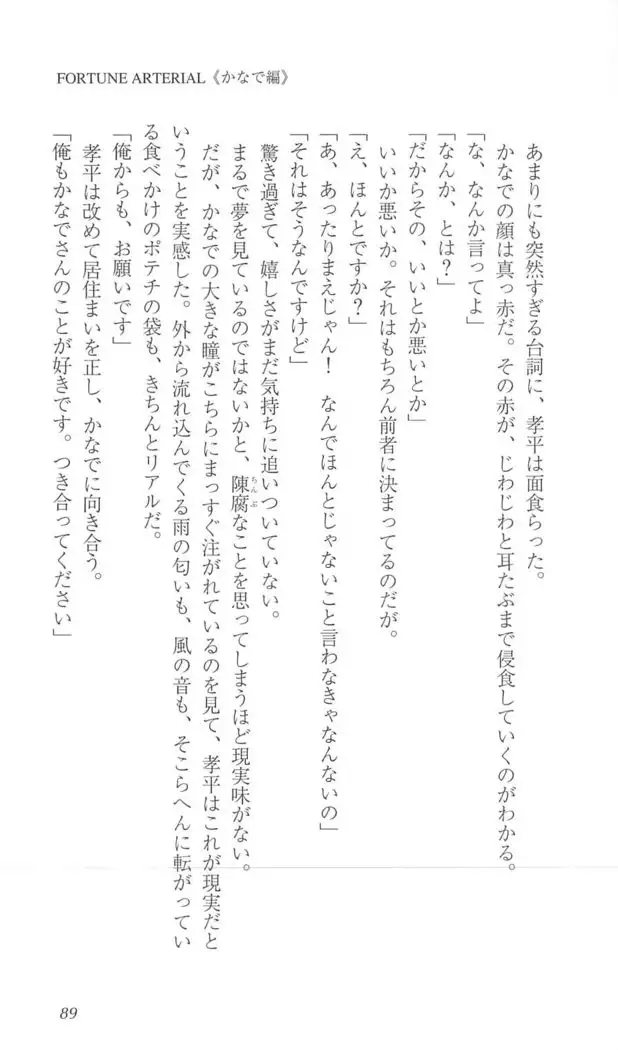 FORTUNE ARTERIAL《かなで編》
あまりにも突然すぎる台詞に、孝平は面食らった。
かなでの顔は真っ赤だ。その赤が、じわじわと耳たぶまで侵食していくのがわかる。
「な、なんか言ってよ」
「なんか、とは？」
「だからその、いいとか悪いとか」
いいか悪いか。それはもちろん前者に決まってるのだが。
「え、ほんとですか？」
「あ、あったりまえじゃん！　なんでほんとじゃないこと言わなきゃなんないの」
「それはそうなんですけど」
驚き過ぎて、嬉しさがまだ気持ちに追いついていない。
まるで夢を見ているのではないかと、陳腐なことを思ってしまうほど現実味がない。
ちんぷ
だが、かなでの大きな瞳がこちらにまっすぐ注がれているのを見て、孝平はこれが現実だと
いうことを実感した。外から流れ込んでくる雨の匂いも、風の音も、そこらへんに転がってい
る食べかけのポテチの袋も、きちんとリアルだ。
「俺からも、お願いです」
孝平は改めて居住まいを正し、かなでに向き合う。
「俺もかなでさんのことが好きです。つき合ってください」
89